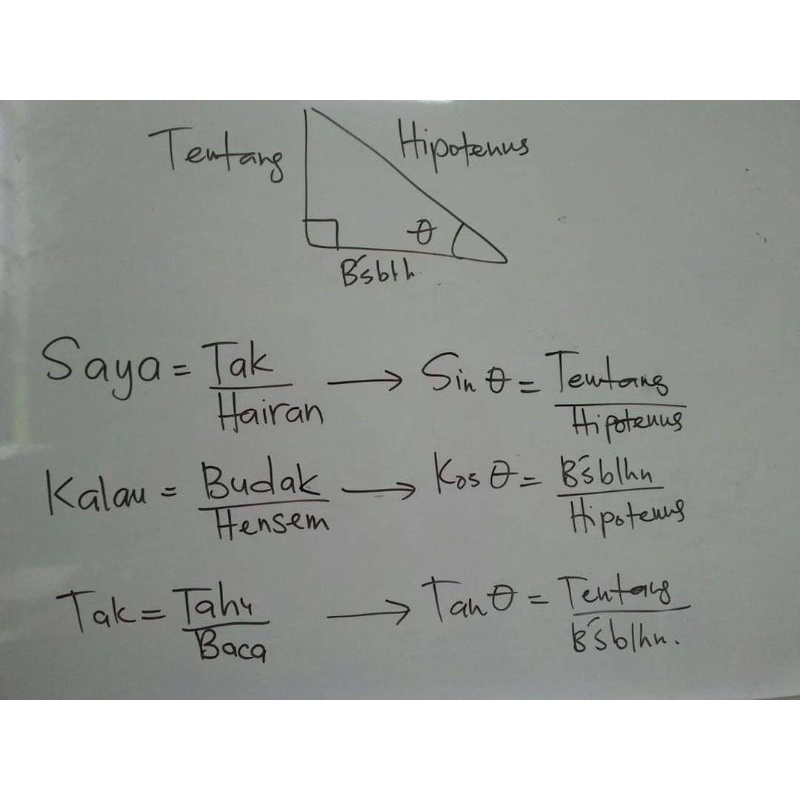 Tentang
Hipotenus
θ
B'sblh
Saya = Tak / Hairan → Sin θ = Tentang / Hipotenus
Kalau = Budak / Hensem → Kos θ = B'sblhn / Hipotenus
Tak = Tahu / Baca → Tan θ = Tentang / B'sblhn.